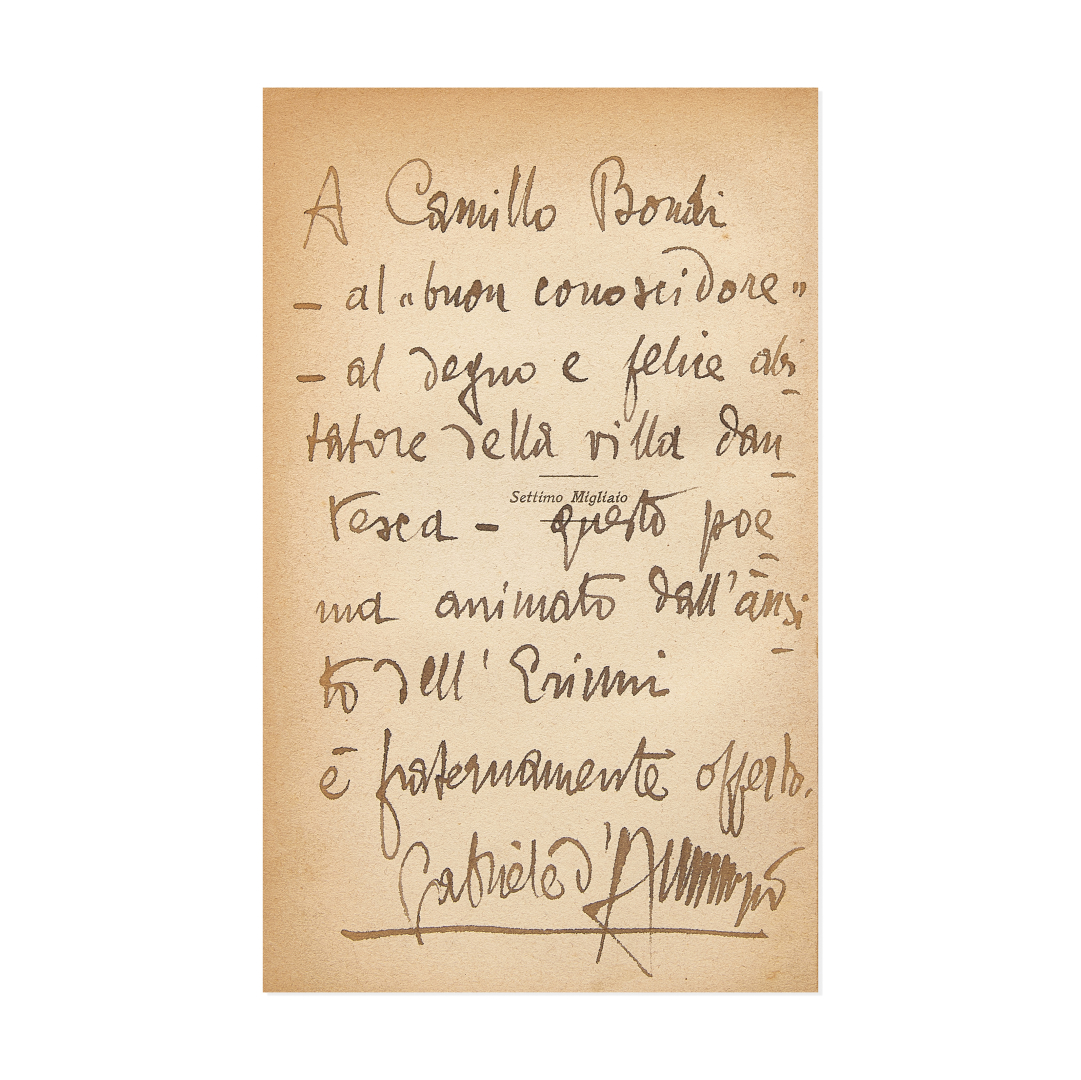 A Camillo Bondi
– al «buon conoscidore»
– al degno e felice abi-
tatore della villa dan-
Settimo Migliaio
tesca – questo poe-
ma animato dall'ansi-
to dell' Erinni
è fraternamente offerto.
Gabriele d'Annunzio